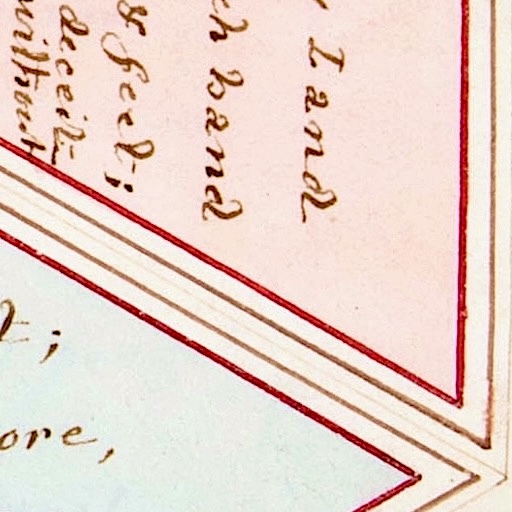 I and
ch band
& feet;
deceit
without
t;
ore,